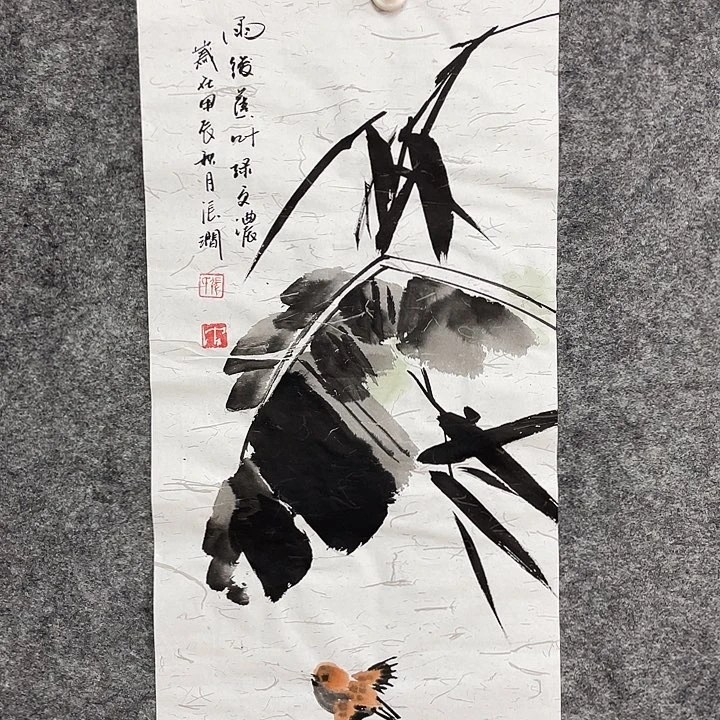 雨後蕉叶绿更濃
歲在甲辰秋月張潤